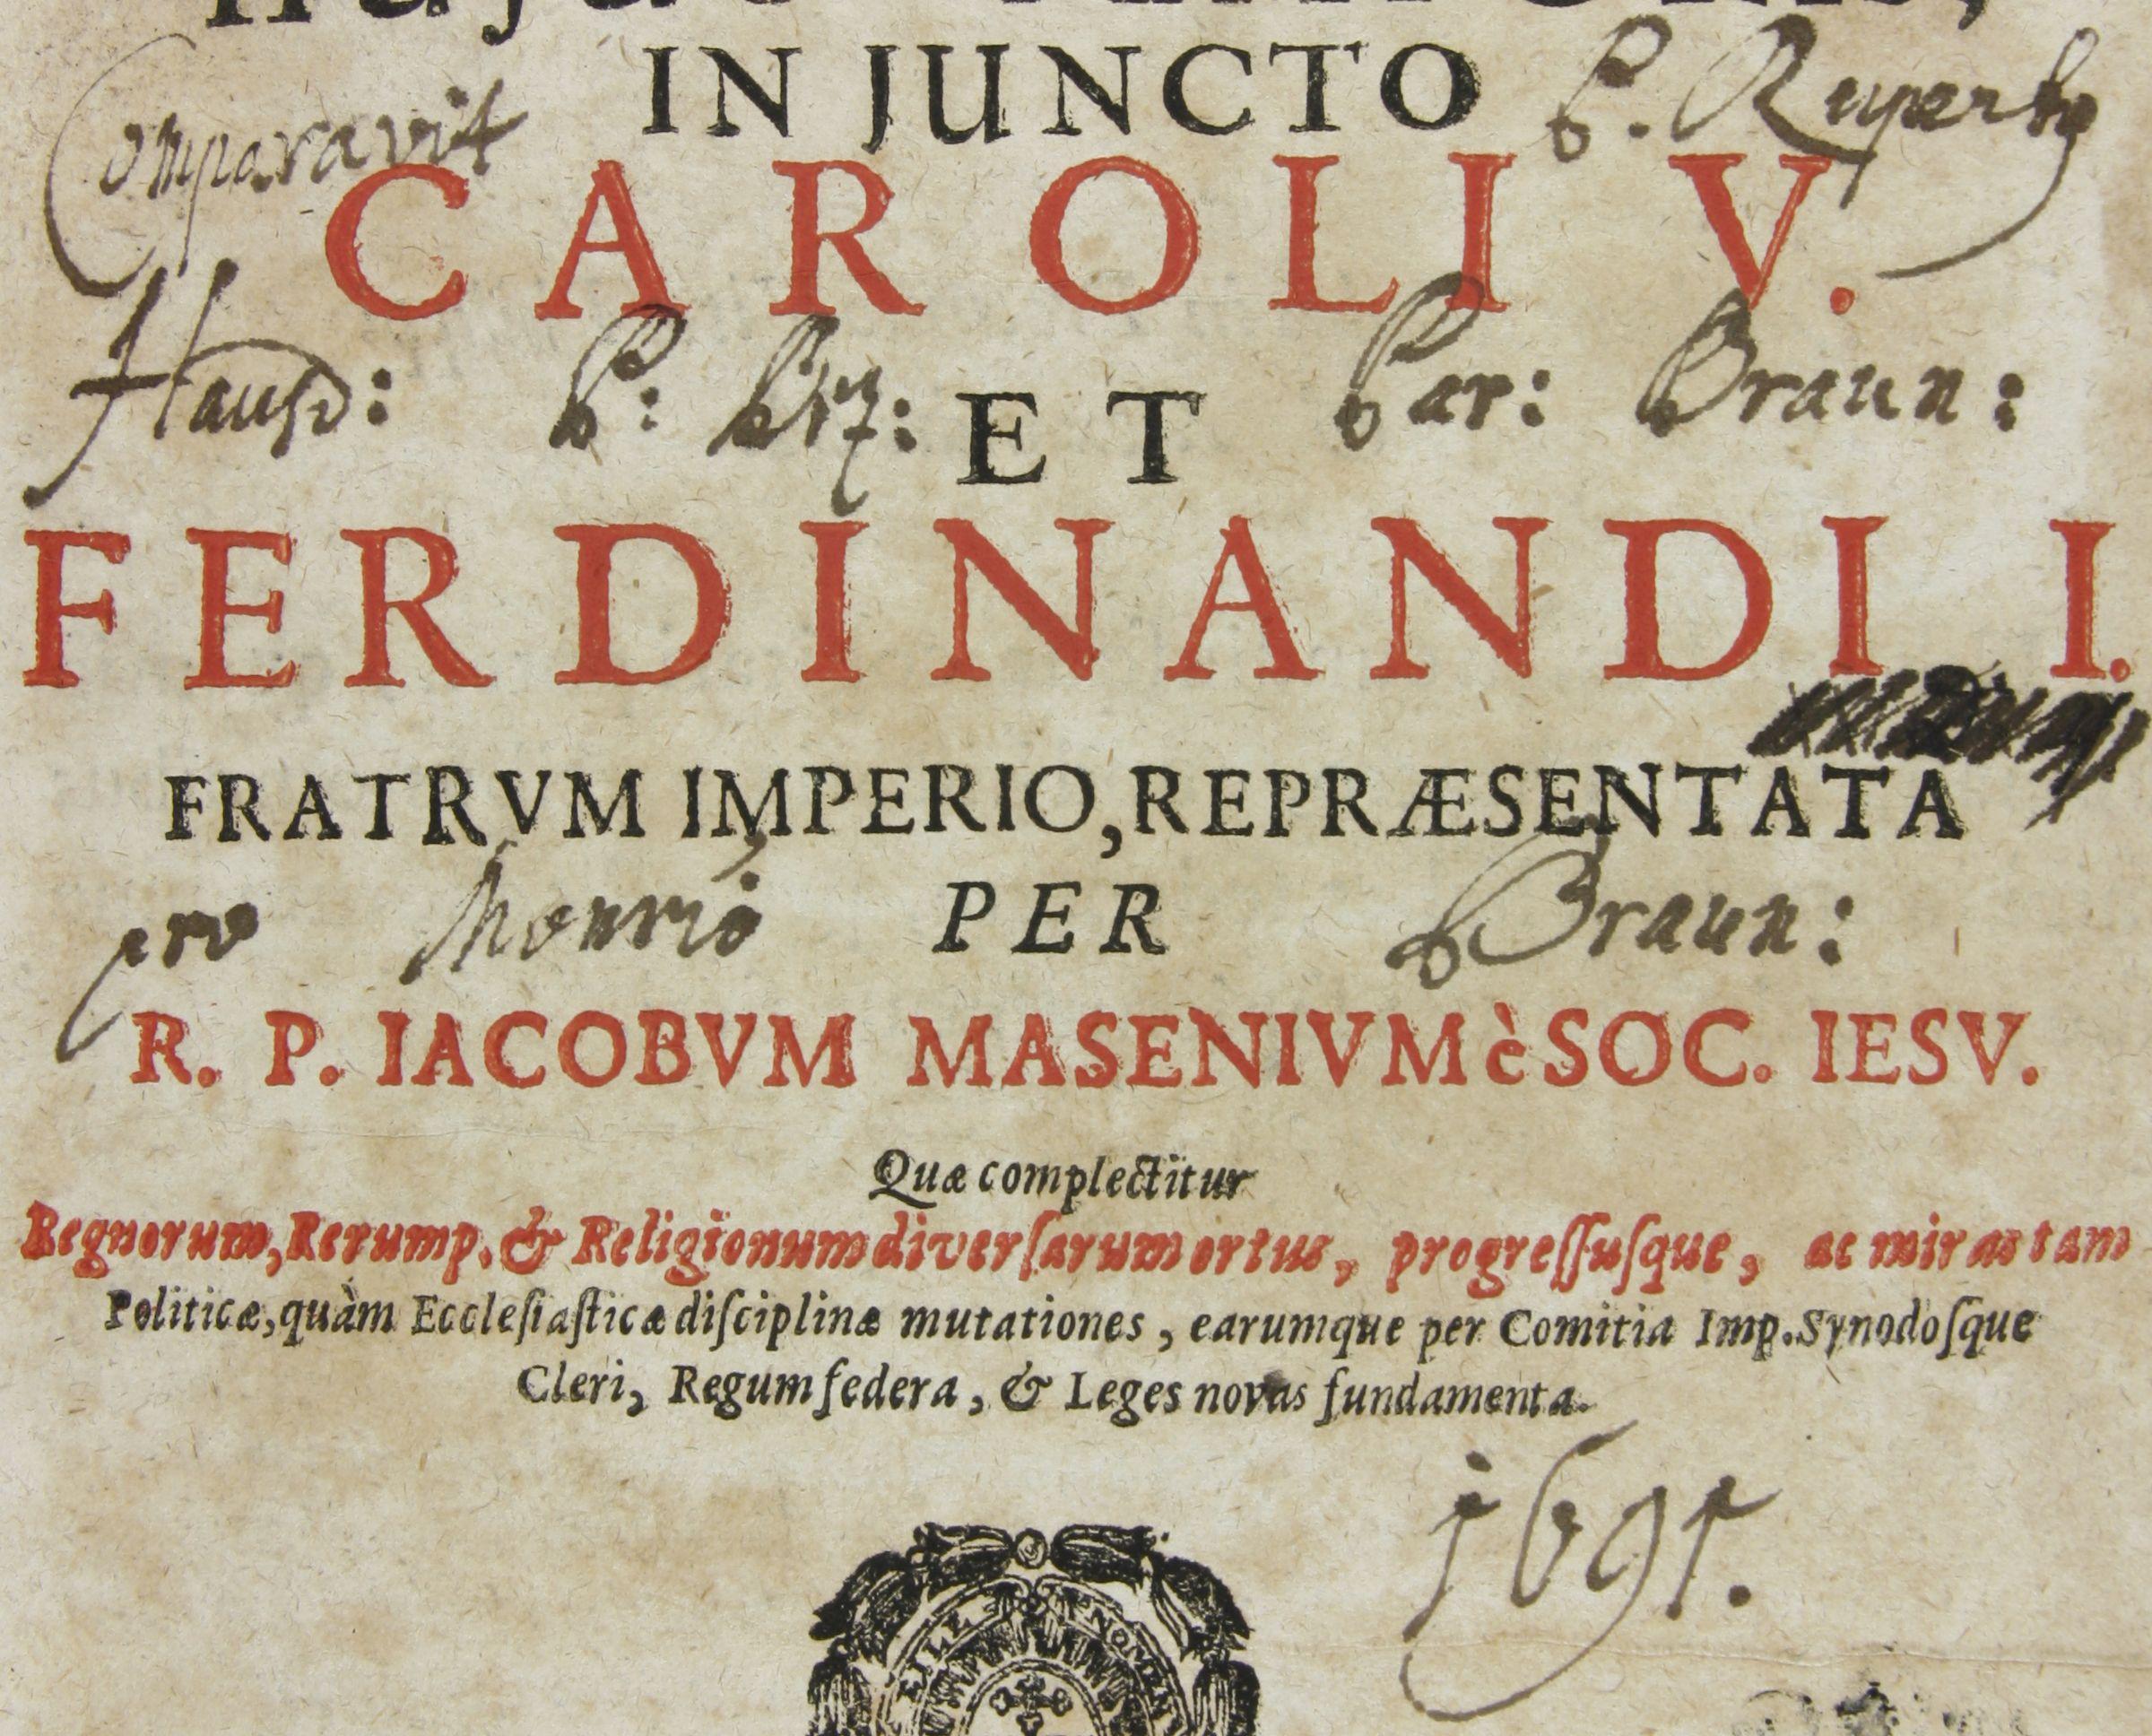 IN JUNCTO P. Ruperty
Comparavit
CAROLI V.
Hausd: P: Par: Braun:
ET
FERDINANDI I.
FRATRVM IMPERIO, REPRÆSENTATA
pro Monrio PER Braun:
R. P. IACOBVM MASENIVM è SOC. IESV.
Quæ complectitur
Regnorum, Rerump. & Religionum diverſarum ortus, progreſſuſque, ac miras tam
Politicæ, quàm Eccleſiaſticæ diſciplinæ mutationes, earumque per Comitia Imp. Synodoſque
Cleri, Regum federa, & Leges novas fundamenta.
1691.